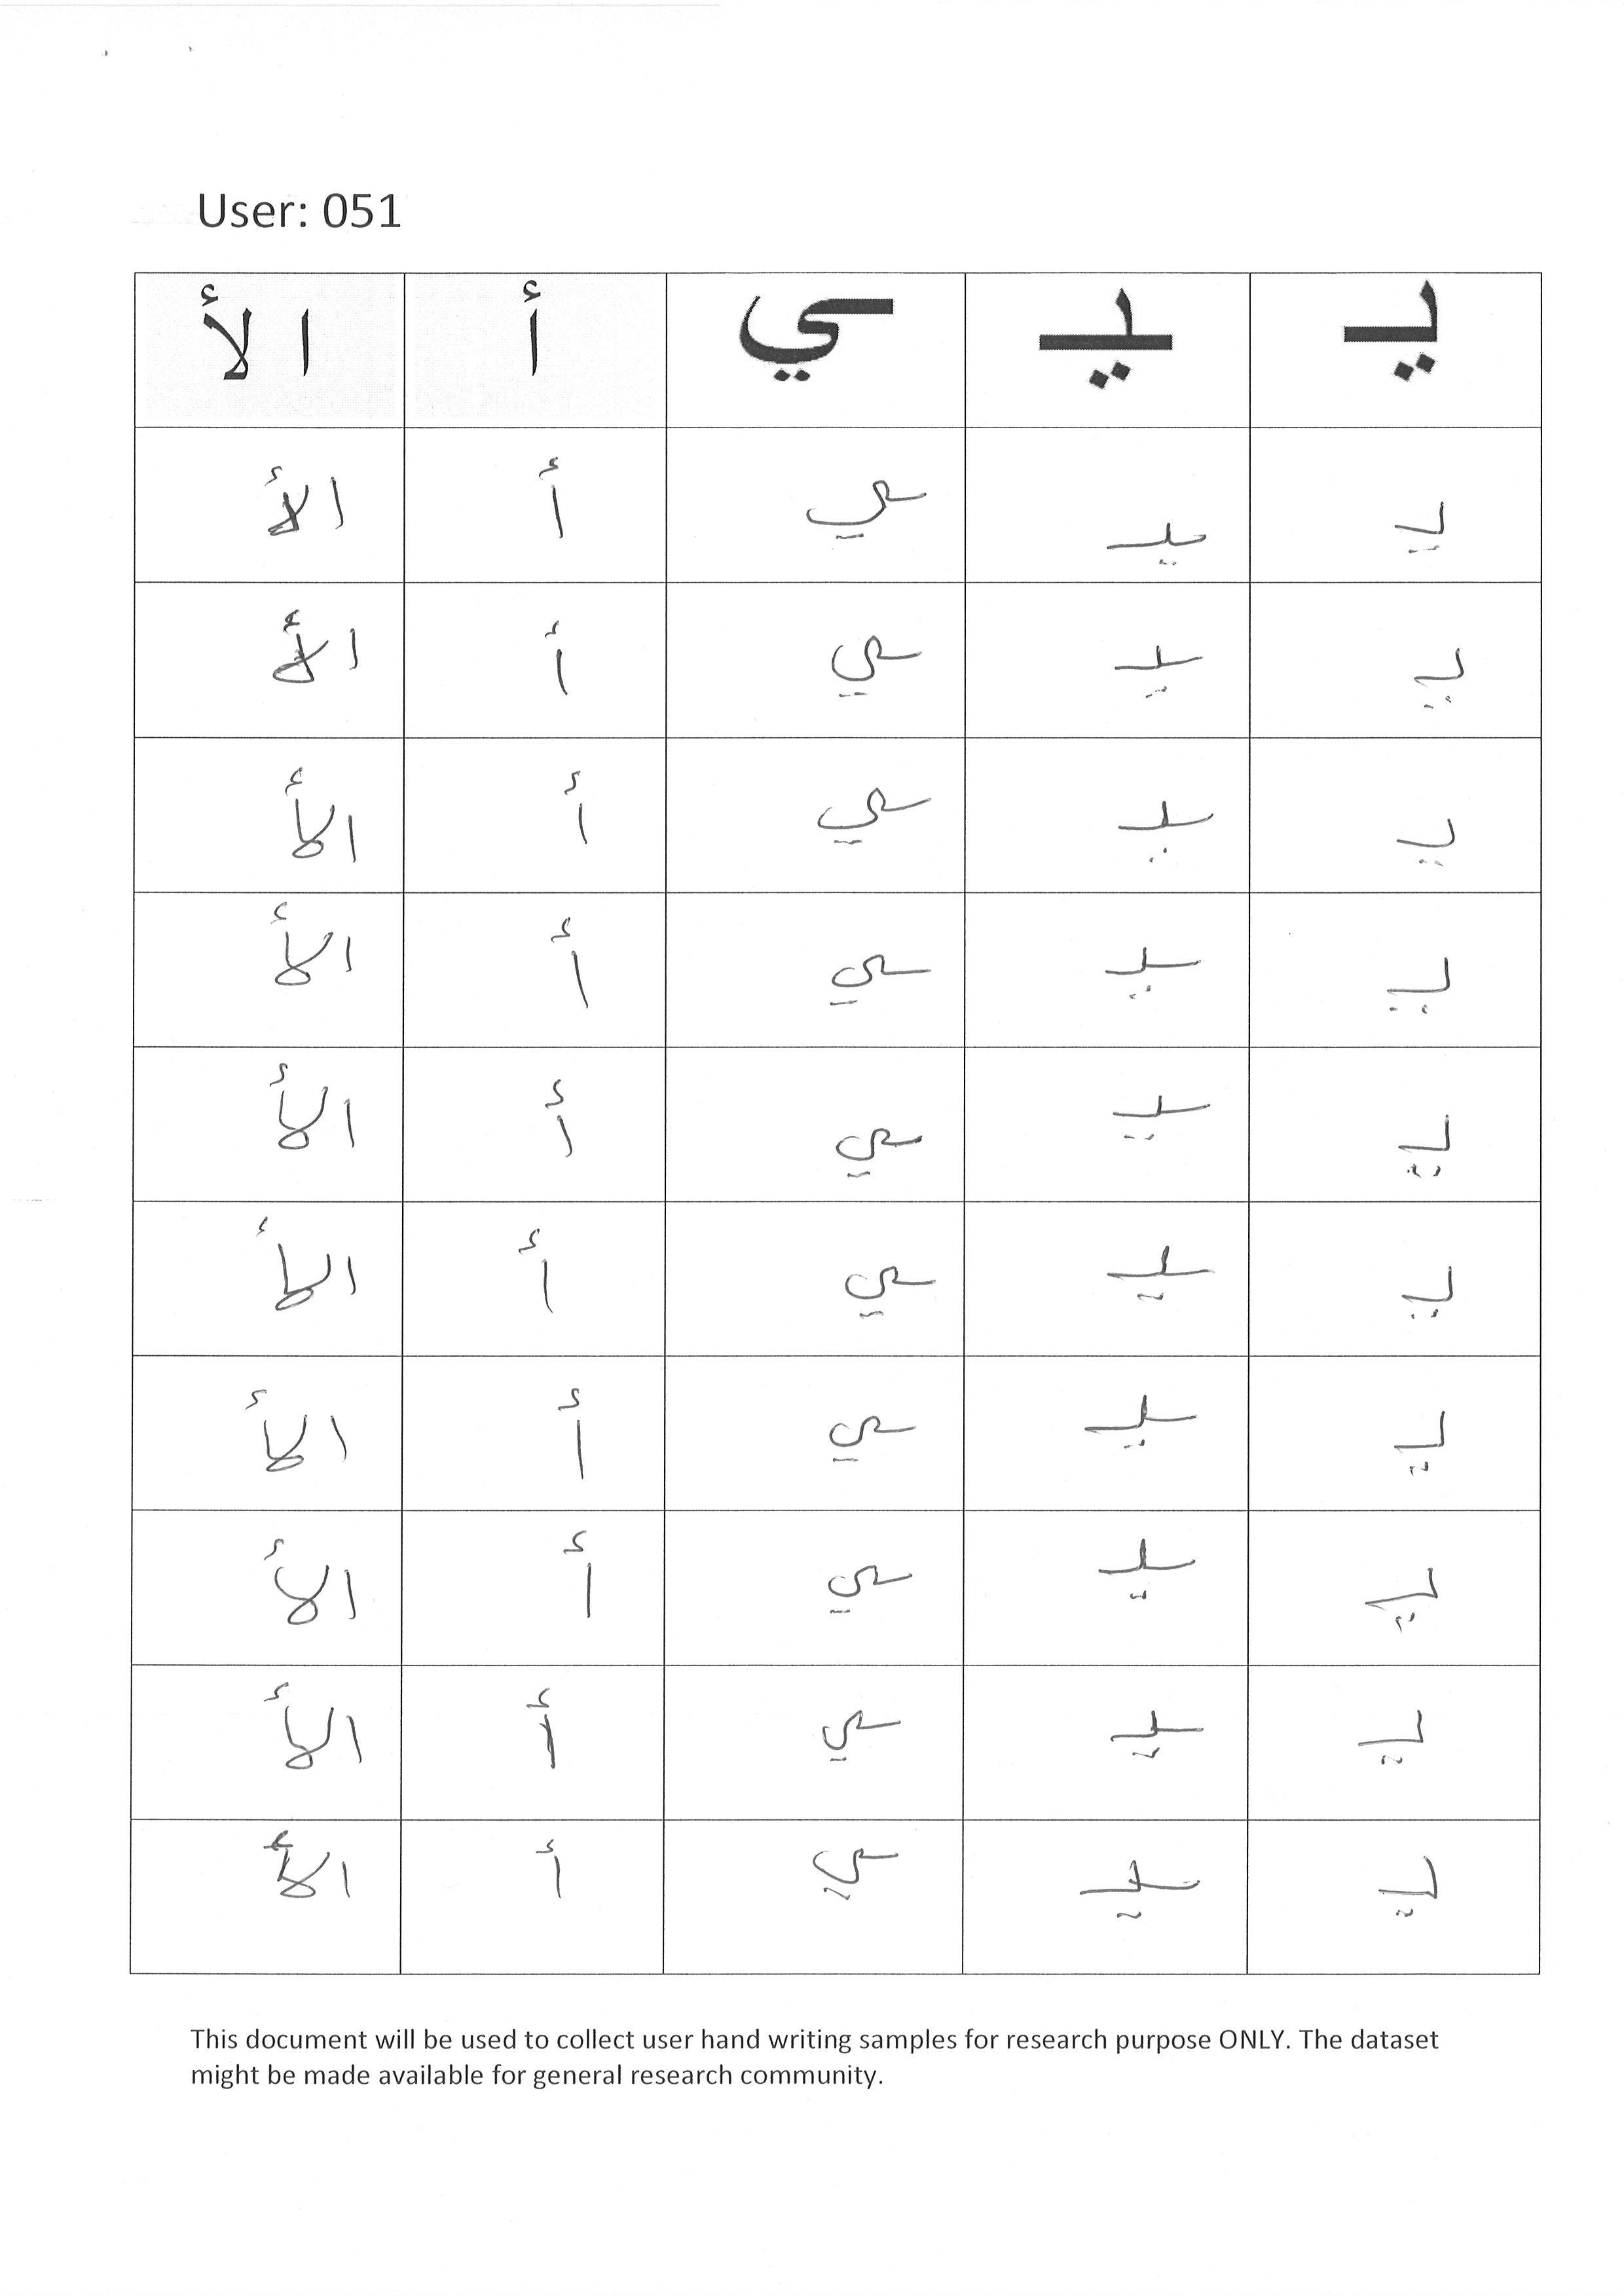 User: 051
يـ ـيـ ـي أ ا لأ
يـ ـيـ ـي أ ا لأ
يـ ـيـ ـي أ ا لأ
يـ ـيـ ـي أ ا لأ
يـ ـيـ ـي أ ا لأ
يـ ـيـ ـي أ ا لأ
يـ ـيـ ـي أ ا لأ
يـ ـيـ ـي أ ا لأ
يـ ـيـ ـي أ ا لأ
يـ ـيـ ـي أ ا لأ
يـ ـيـ ـي أ ا لأ
This document will be used to collect user hand writing samples for research purpose ONLY. The dataset
might be made available for general research community.